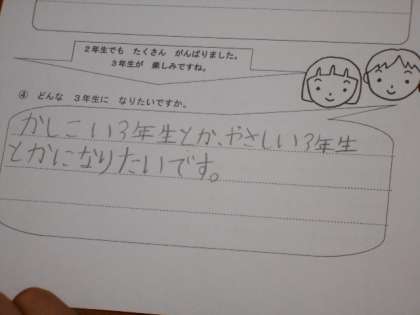 2年生でも たくさん がんばりました。
3年生が 楽しみですね。
④ どんな 3年生に なりたいですか。
かしこい3年生とか、やさしい3年生
とかになりたいです。